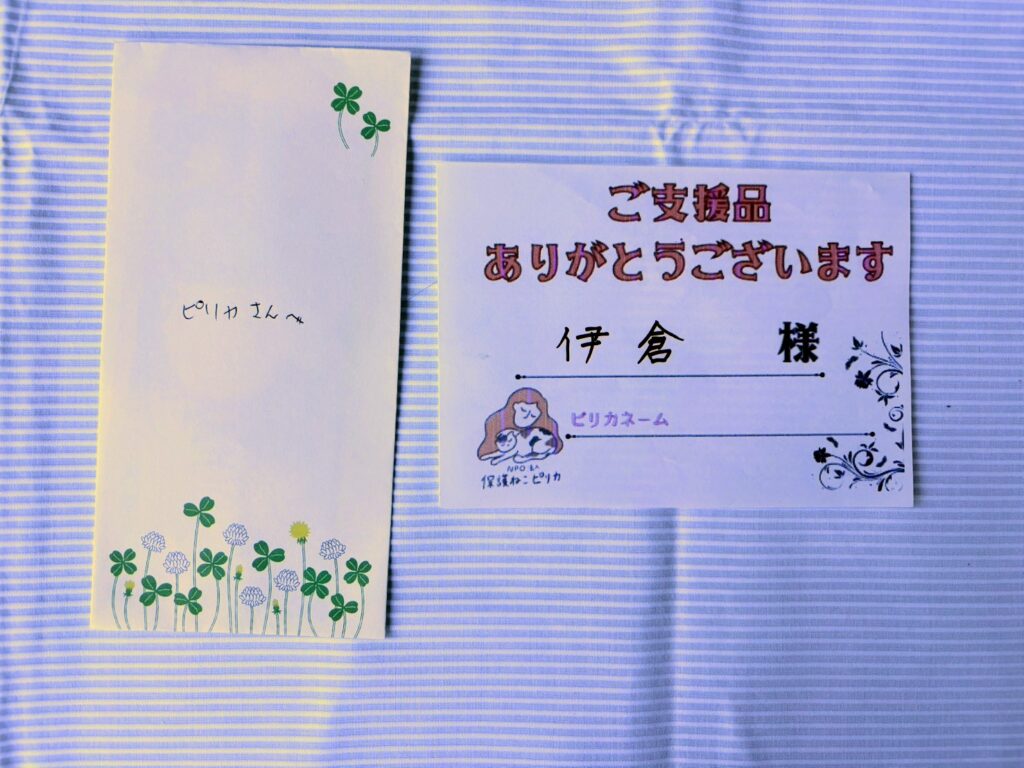 ピリカさんへ
ご支援品
ありがとうございます
伊倉 様
ピリカネーム
NPO法人
保護ねこピリカ